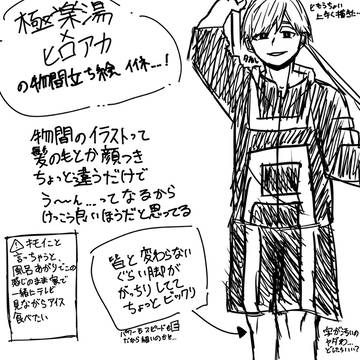 極楽湯
×
ヒロアカ
の物間立ち絵 イイネ…!
ともうちょい
上手く描きたい
物間のイラストって
髪のもとか顔つき
ちょっと違うだけで
う〜ん…ってなるから
けっこう良いほうだと思ってる
⚠キモイこと
言っちゃうと、
風呂あがりでこの
感じのまま家で
一緒にテレビ
見ながらアイス
食べたい
皆と変わらない
ぐらい脚が
がっちりしてて
ちょっとビックリ
パワーもスピードも
だから細いのかと…
字がきちい
ヤダわ…
どしたらいい…?